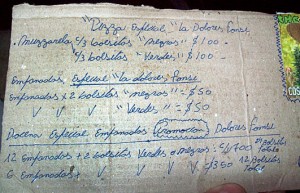 "Pizza Especial "La Dolores Fonse
Muzzarela c/3 bolsitos "Negros" $100-
c/3 bolsitos "Verdes" $100-
Empanadas, Especial "la dolores Fonse
Empanadas x2 bolsitos "negros" = $50
√ √ √ "Verdes" = $50
Docena Especial Empanadas Promocion Dolores Fonse
12 Empanadas + 2 bolsitos Verdes o Negros = c/u $700
6 Empanadas √ √ √ c/$350 12 Bolsitos